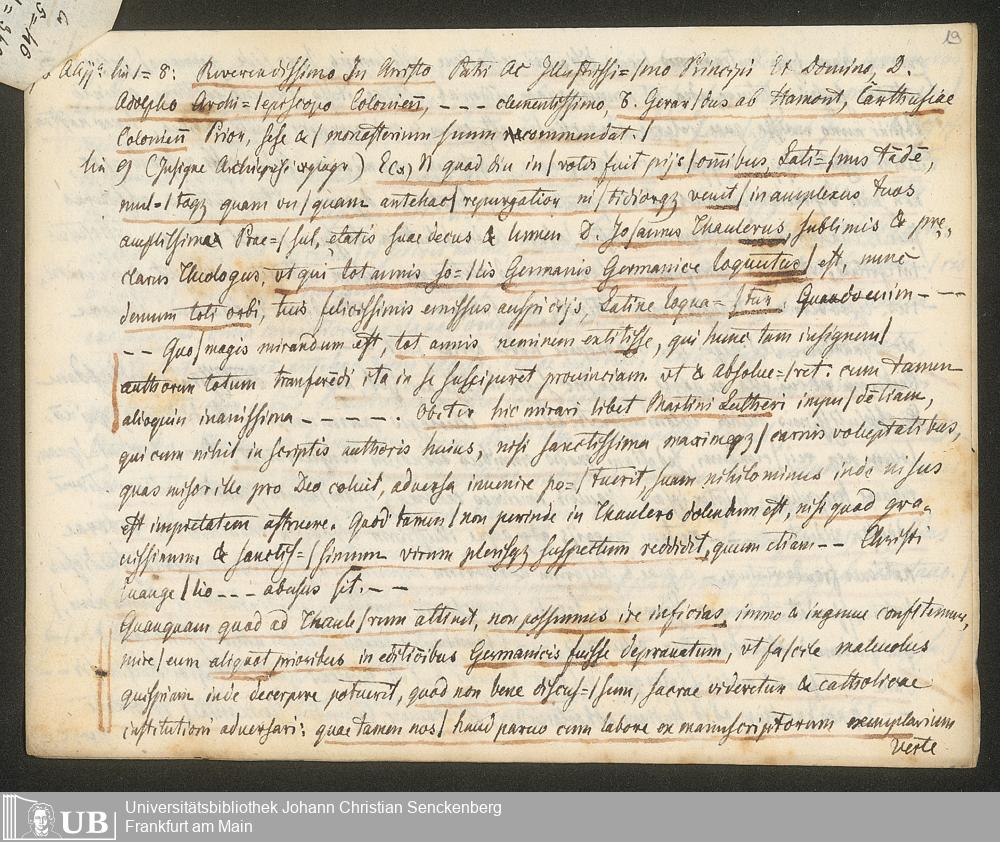 19
5=46
Aijª lin 1=8: Reverendissimo In Christo Patri Ac Illustrissi=/mo Principi Et Domino, D.
Adolpho Archi=/episcopo Colonieñ, --- clementissimo F. Gerar/dus ab Hamont, Carthusiae
Colonieñ Prior, sese &/ monasterium suum recommendat./
lin 9 (Insigne Archiepisc.) quod diu in/ votis fuit pijs/ omnibus, Lati=/nus tādē,
mul=/toqz quam vn/quam antehac/ repurgatior ni/tidiorqz venit/ in amplexus tuos
amplissime Prae=/sul, etatis suae decus & lumen D. Joannes Thaulerus, sublimis & prę,
clarus Theologus, vt qui tot annis so=/lis Germanis Germanice loquutus/ est, nunc
demum toti orbi, tuis felicissimis emissus auspicijs, Latine loqua=/tur. Quando enim ---
-- Quo/ magis mirandum est, tot annis neminem extitisse, qui hunc tam insignem/
authorem totum transferēdi ita in se susciperet prouinciam vt & absolue=/ret: cum tamen
alioquin inanissima -----. Obiter hic mirari libet Martini Lutheri impu/dētiam,
qui cum nihil in scriptis authoris huius, nisi sanctissima maximeqz/ carnis voluptatibus,
quas miser ille pro Deo coluit, aduersa inuenire po=/tuerit, suam nihilominus inde nisus
est impietatem astruere. Quod tamen/ non perinde in Thaulero dolendum est, nisi quod gra-
uissimum & sanctis=/simum virum plerisqz suspectum reddidit, quum etiam -- Christi
Euange/lio --- abusus sit. --
Quanquam quod ad Thaule/rum attinet, non possumus ire inficias, immo & ingenue confitemur,
mire/ eum aliquot prioribus in editiōibus Germanicis fuisse deprauatum, vt fa/cile maleuolus
quispiam inde decerpere potuerit, quod non bene discus=/sum, sacrae videretur & catholicae
institutioni aduersari: quae tamen nos/ haud paruo cum labore ex manuscriptorum exemplarium
verte
UB Universitätsbibliothek Johann Christian Senckenberg
Frankfurt am Main